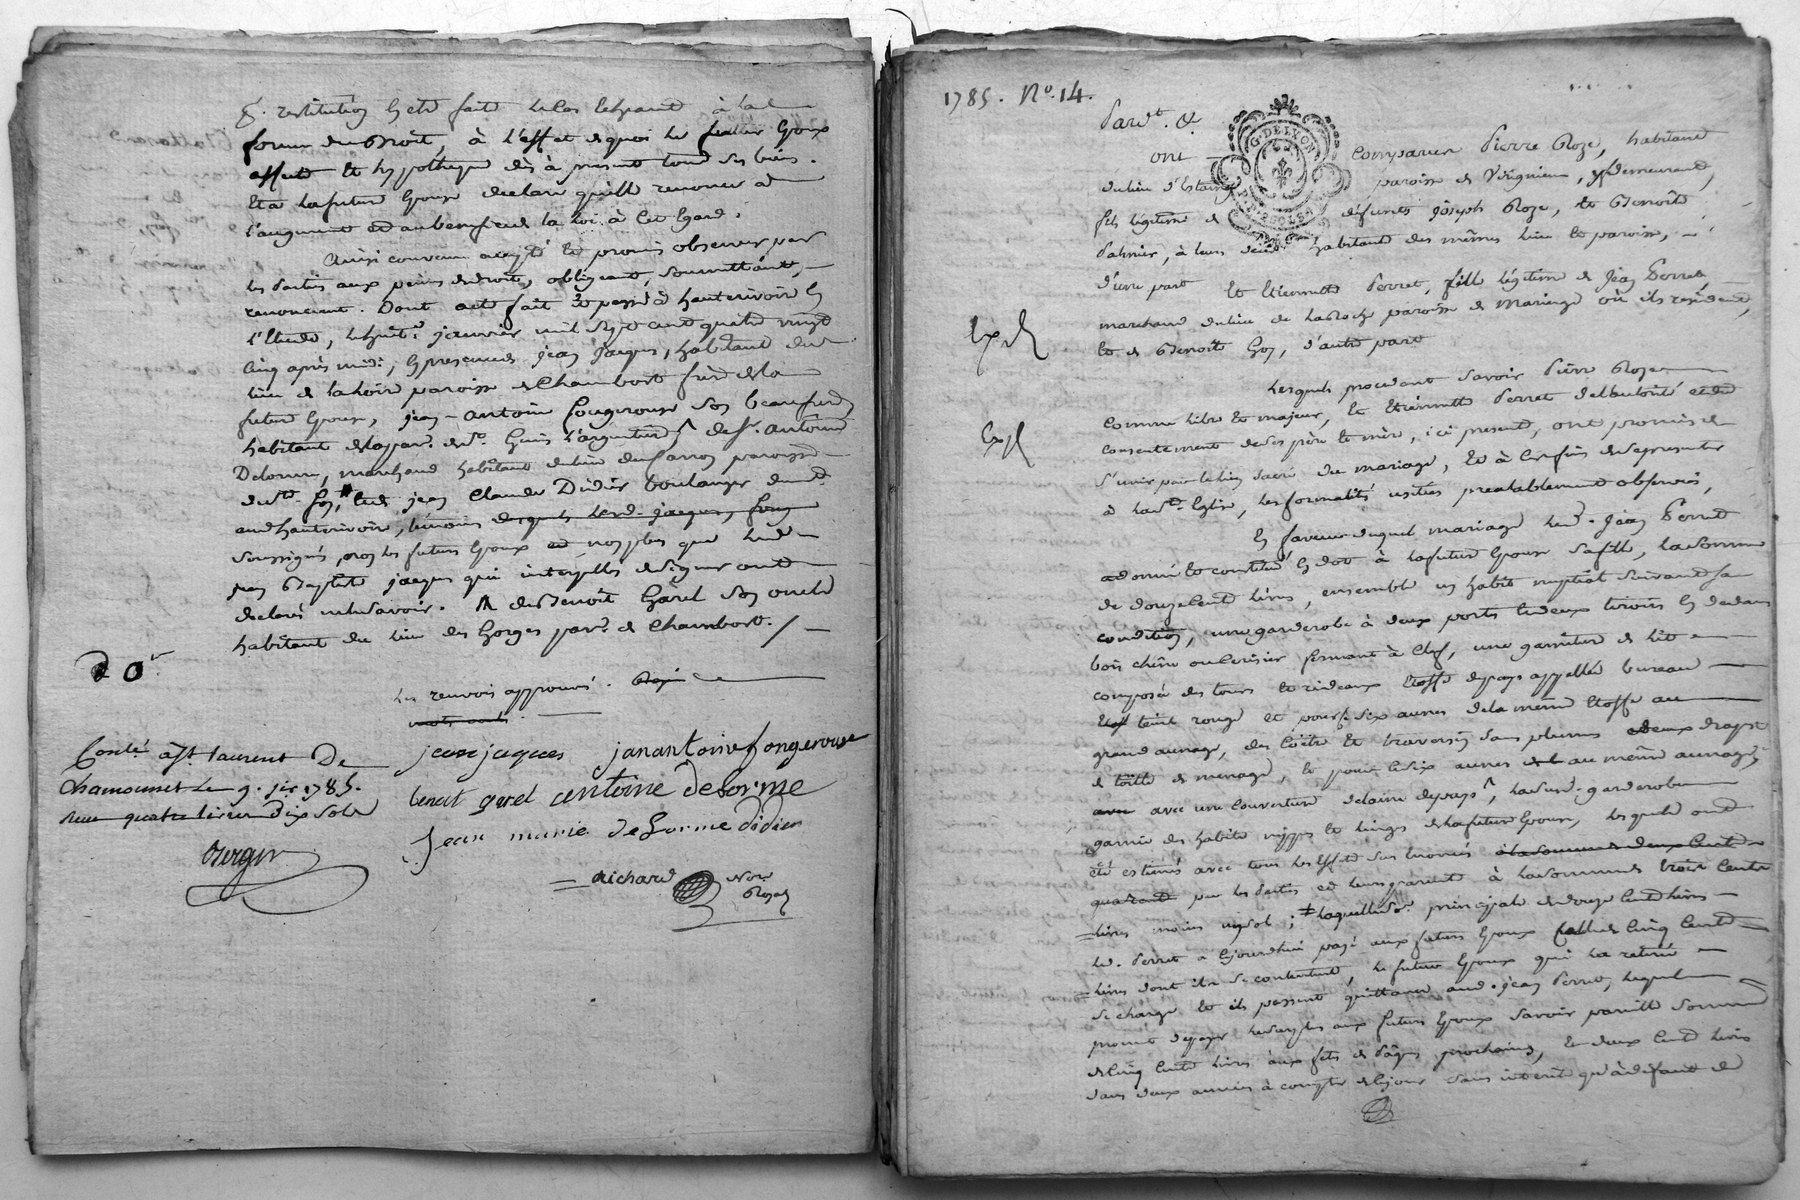 restitution en etre fait le cas echeant à la
forme du Droit, à l'effet de quoi le futur Epoux
affecte et hypotheque dès à present tous ses biens.
Et a la future Epouse declaré qu'elle renonce à
l'augment et au benefice de la Loi à cet Egard.
Ainsi convenu accepté et promis observer par
les Parties aux peines de droit, obligeant, soumettant,
renonceant. Dont acte fait et passé à hauterivoire En
l'Etude, le huit.e janvier mil sept cent quatre vingt
Cinq après midi, En presence de jean jacques, habitant du
lieu de la paroisse de Chambost frère de la
future Epouse, jean-antoine fougerouse son beaufrere
habitant de la par. de St. Genis l'argentiere de Sr. antoine
Delorme, marchand habitant du lieu de paroisse
du St. Foy, et de jean Claude Didier boulanger du
aud hauterivoire, temoins desquels led. jacques, foug
soussignés, non les futurs Epoux et, non plus que led.
jean Baptiste jacques qui interpellés de signer ont
declaré ne le savoir. de Benoit Garel son oncle
habitant du lieu des Gorges par. de Chambost. /
20.r
Les renvois approuvés.
mots nuls.
Conlé. à St. laurent De
Chamousset Le 9. jer 1785.
Reçu quatre livres Dix Sols
Berger
jean jacques janantoine fongerouse
benoit garel antoine deLorme
Jean marie deLorme didier
Richard Nore
Royal
1785. No. 14.
Pardt. &.
G. DE LYON
ont Comparu Pierre Roze, habitant
du lieu d' paroisse de y demeurant,
fils légitime de défunts Joseph Roze, et Benoite
Palmier, à leurs deces habitants des mêmes lieu et paroisse,
d'une part Et Etiennette Perret, fille légitime de Jean Perret
marchand du lieu de la Roche paroisse de Maringe où ils resident,
et de Benoite Goy, d'autre part
Exp
Lesquels procedant savoir Pierre Roze
Comme libre et majeur, et Etiennette Perret de l'autorité et du
Exp
consentement de ses père et mère, ici present, ont promis de
s'unir par le lien sacré du mariage, et à ces fins de se presenter
à la Ste. Eglise, les formalités usitées prealablement observées,
En faveur duquel mariage led. Jean Perret
a donné et constitué En dot à la future Epouse sa fille, la somme
de douze Cent livres, ensemble un habit nuptial suivant sa
condition, une garderobe à deux portes et deux tiroirs En dedans
bois chêne ou Cerisier fermant à Clef, une garniture de lit
composée des tours et rideaux Etoffe de pays appellée bureau
teint rouge et pour six aunes de la même Etoffe au
grand aunage, des Coetre et traversin sans plumes deux draps
de toille de menage, et pour six aunes au même aunage,
avec une couverture de laine de pays, lad. garderobe
garnie des habits nippes et linges de la future Epouse, lesquels ont
été estimés avec tous les Effets sus enoncés à la somme de deux Cent
quarante par les Parties et leurs parents à la somme de trois Cents
livres moins un sol; laquelle de. principale de douze Cent livres
led. Perret a Cejourdhui payé aux futurs Epoux Celle de Cinq Cent
livres dont ils se contentent, le futur Epoux qui l'a retiré
se charge et ils passent quittance aud. jean Perret, lequel
promet de payer le surplus aux futurs Epoux savoir pareille somme
de Cinq Cent livres aux fêtes de Pâques prochaines, et deux Cent livres
dans deux années à compter de Cejour sans interet qu'à defaut de